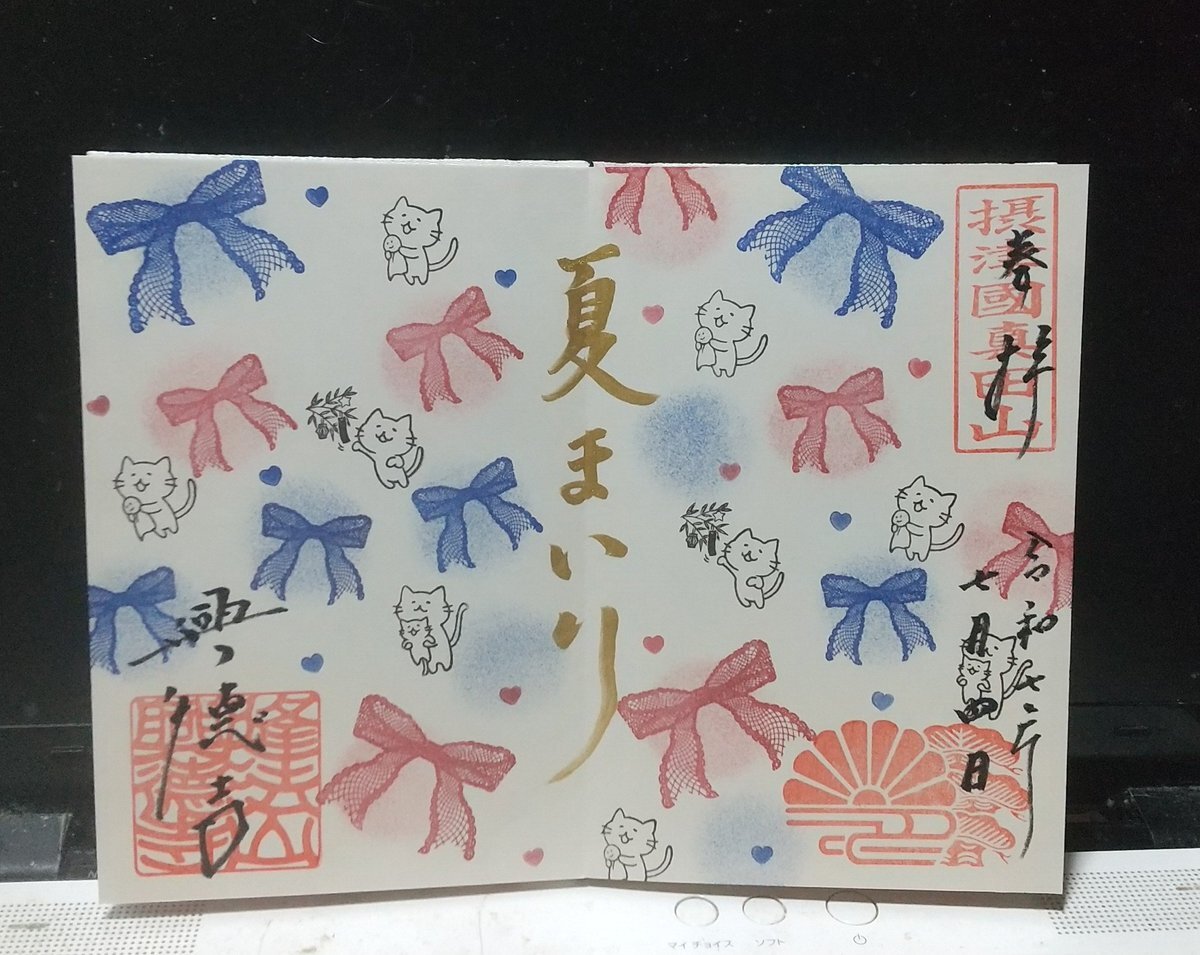 摂津國真田山
奉拝
令和七年
七月四日
夏まいり
興徳寺
マイチョイス
ソフト